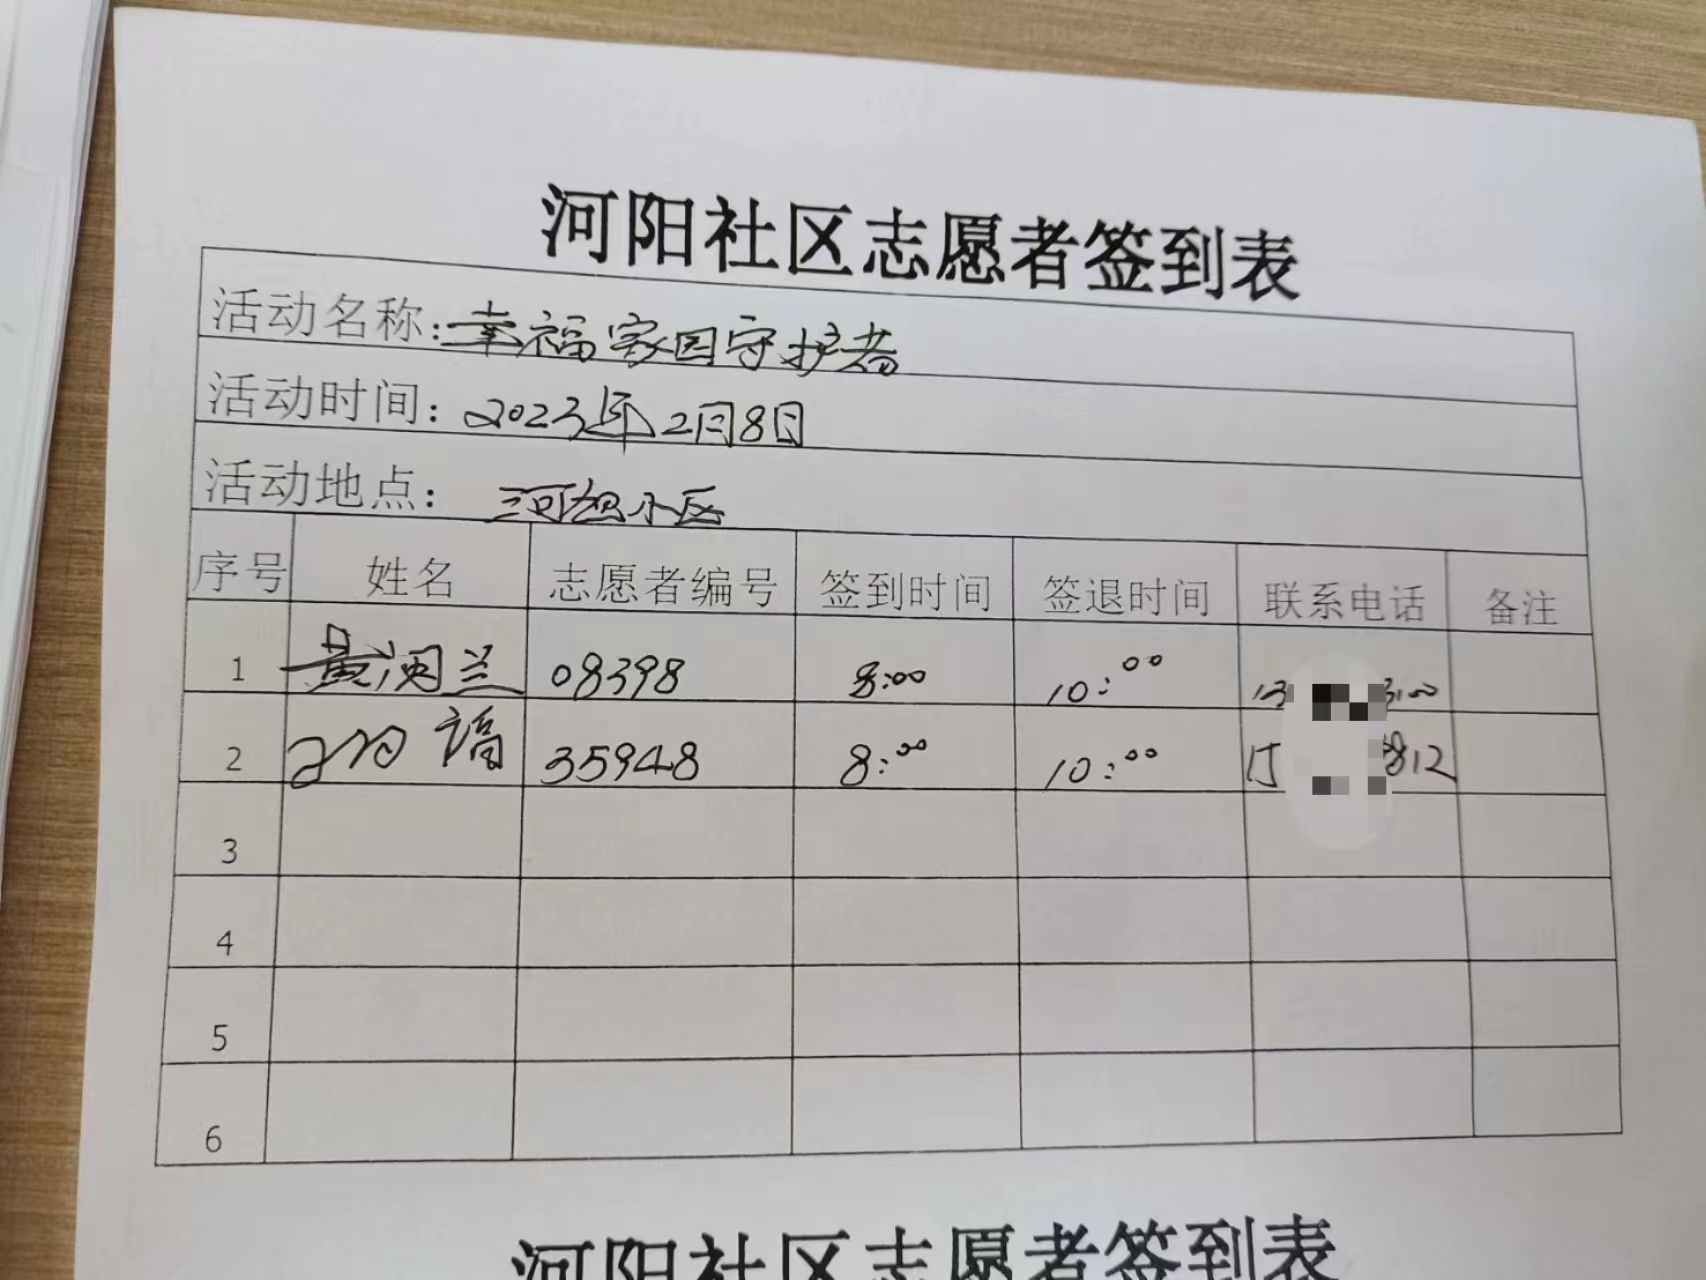 河阳社区志愿者签到表
活动名称：幸福家园守护者
活动时间：2023年2月8日
活动地点：河旭小区
序号 姓名 志愿者编号 签到时间 签退时间 联系电话 备注
1 黄润兰 08398 8:00 10:00 13
2 35948 8:00 10:00 812
3
4
5
6
河阳社区志愿者签到表